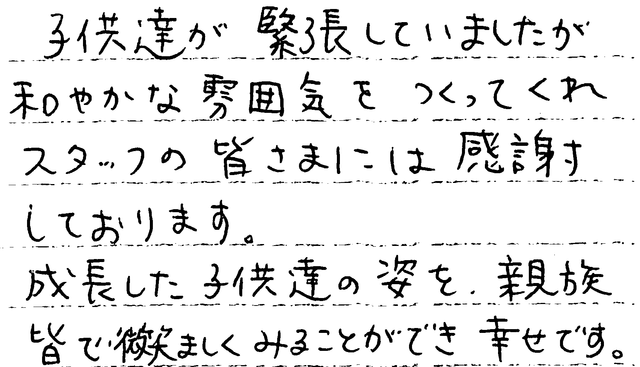 子供達が緊張していましたが
和やかな雰囲気をつくってくれ
スタッフの皆さまには感謝
しております。
成長した子供達の姿を、親族
皆で微笑ましくみることができ幸せです。